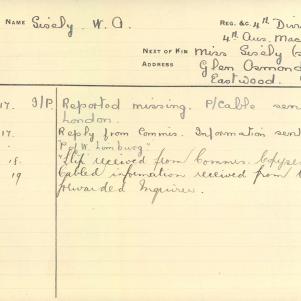 NAME Sisely. W. A.
REG. &C. 4th Divi
4th Aus. Mac
NEXT OF KIN Miss Sisely (s
ADDRESS Glen Osmond
Eastwood.
17. I/P. Reported missing. P/Cable sen
London.
17. Reply from Commis. Information sen
"P of W. Limburg"
18. "Slip received from Commis.
19 Cabled information received from
forwarded Inquirer.